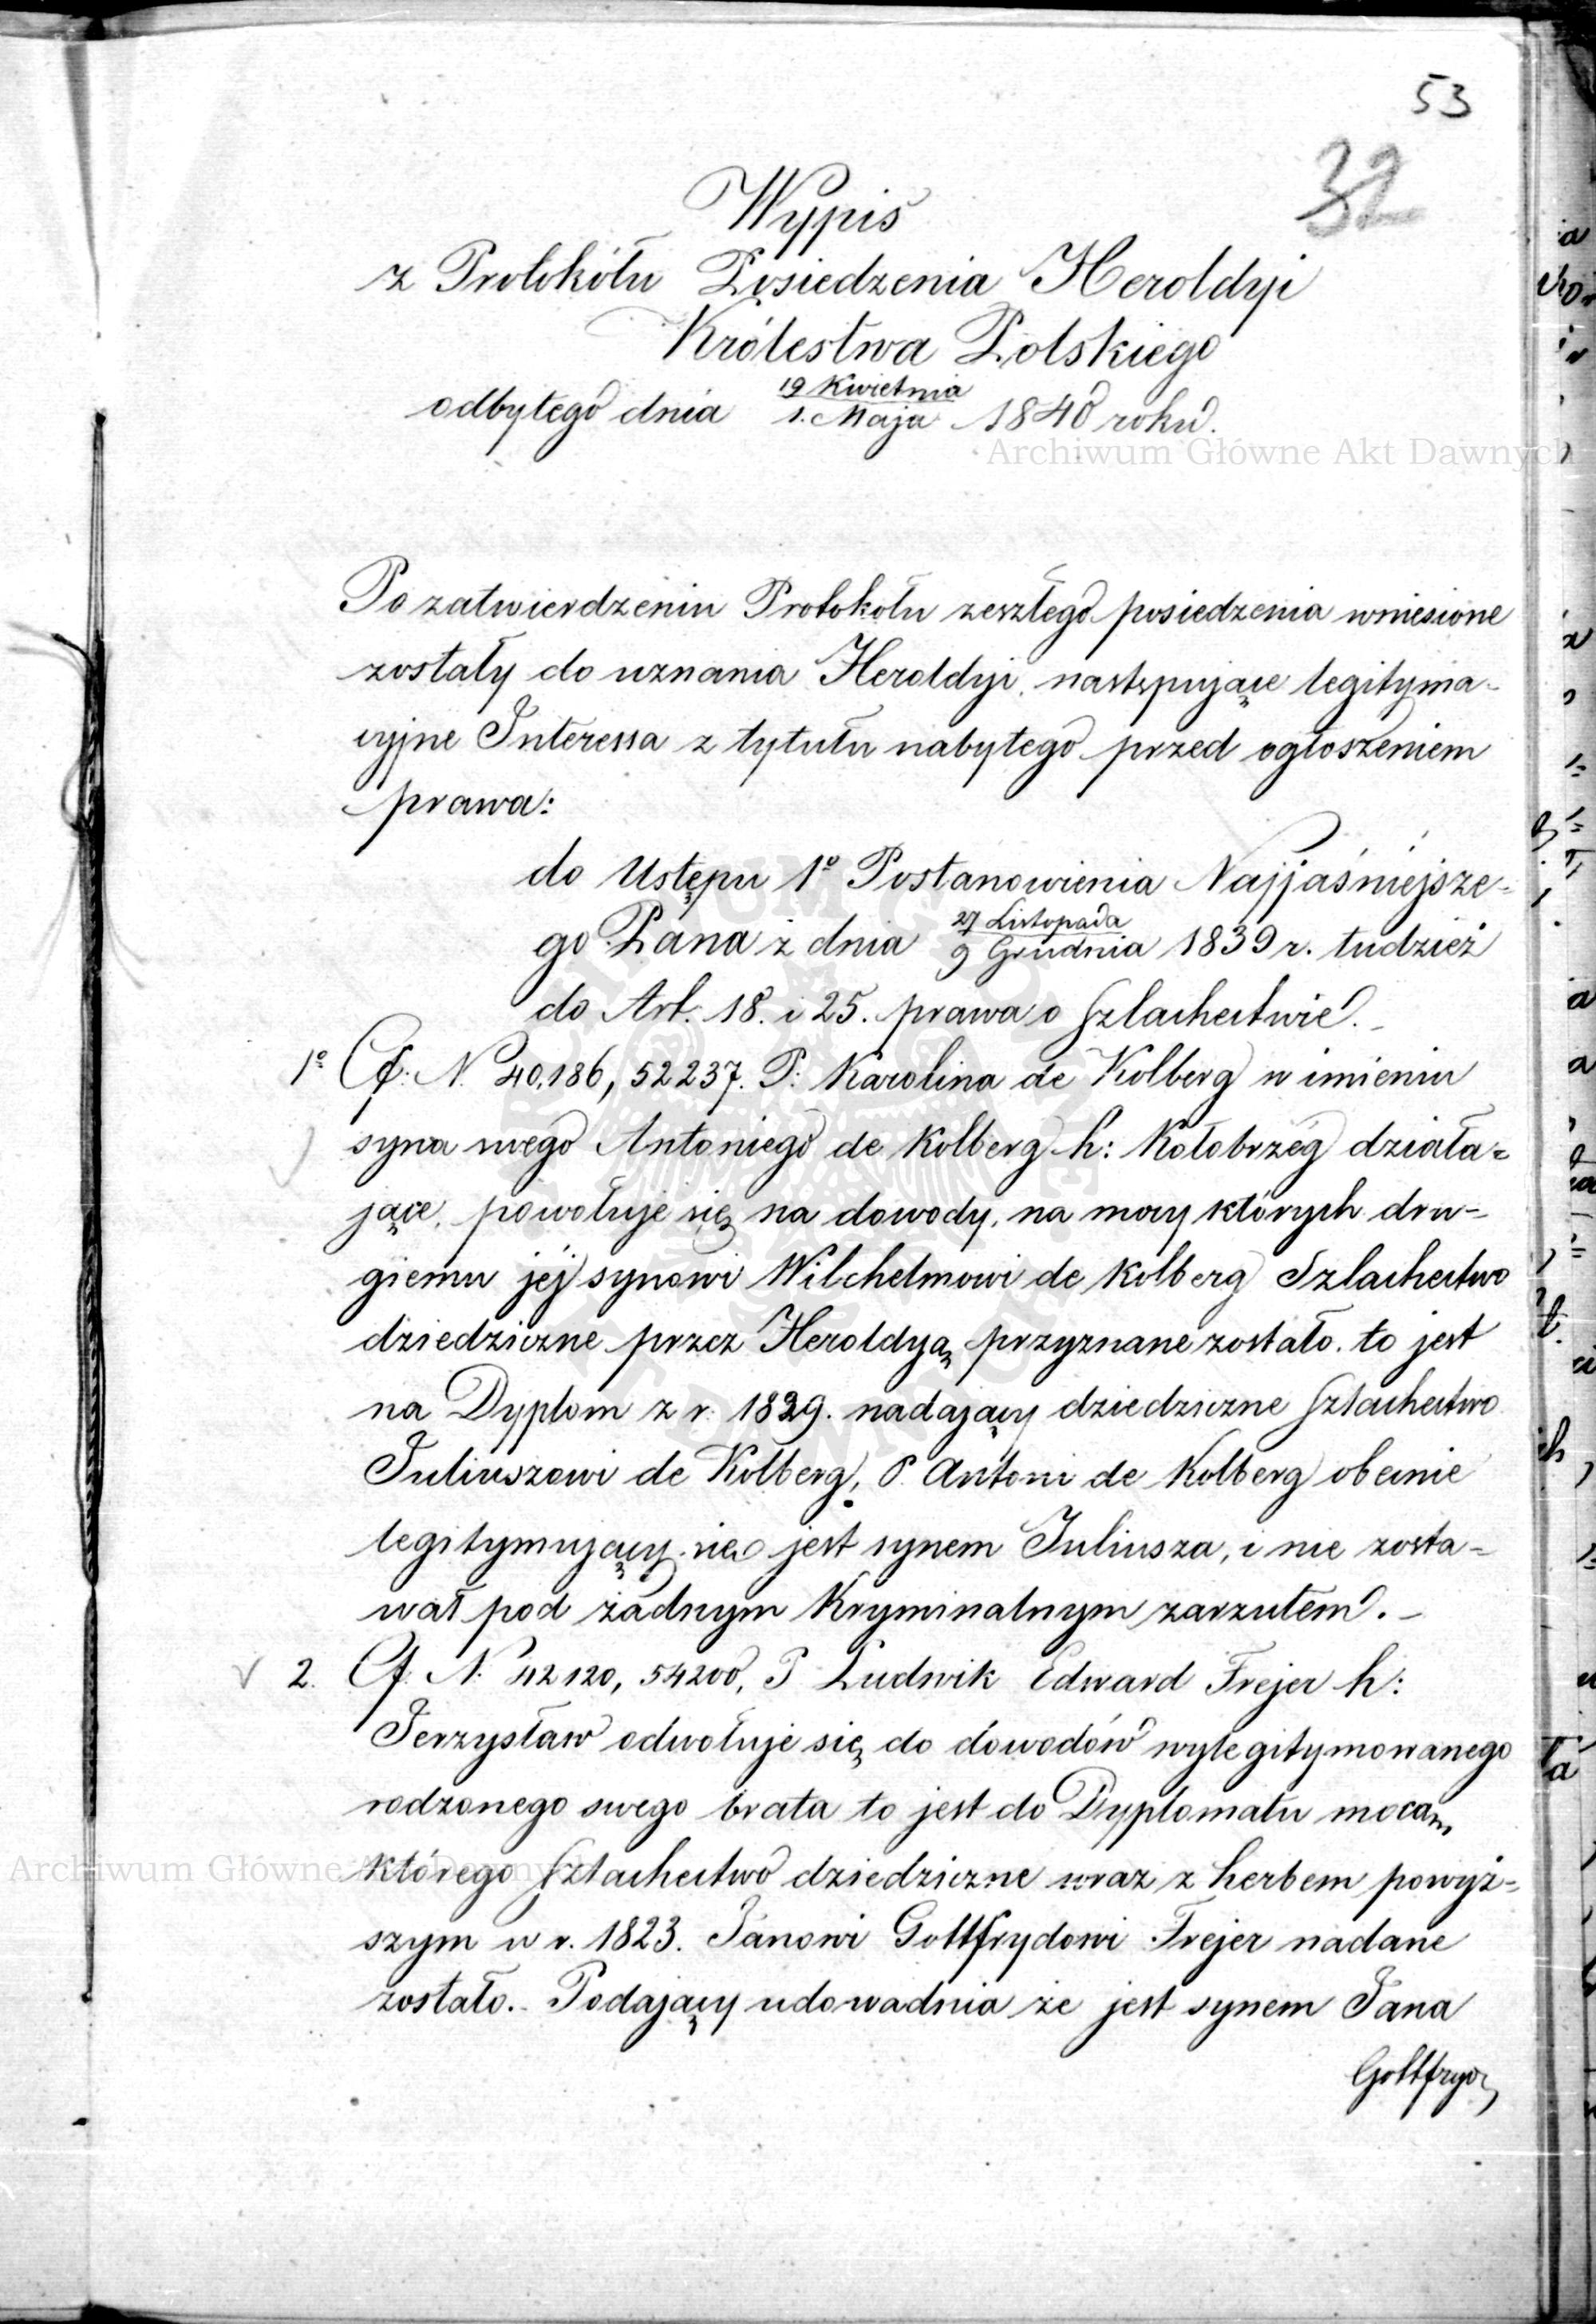 53
32
Wypis
z Protokółu Posiedzenia Heroldyi
Królestwa Polskiego
odbytego dnia 19 Kwietnia / 1. Maja 1840 roku.
Archiwum Główne Akt Dawnych
Po zatwierdzeniu Protokołu zeszłego posiedzenia wniesione
zostały do uznania Heroldyi następujące legityma-
cyjne Interessa z tytułu nabytego przed ogłoszeniem
prawa:
do Ustępu 1º Postanowienia Najjaśniejsze-
go Pana z dnia 27 Listopada / 9 Grudnia 1839 r. tudzież
do Art. 18. i 25. prawa o Szlachectwie.
1º Cf: N. 40,186, 52237. P: Karolina de Kolberg w imieniu
syna swego Antoniego de Kolberg h: Kołobrzég działa=
jące, powołuje się na dowody, na mocy których dru-
giemu jéj synowi Wilchelmowi de Kolberg Szlachectwo
dziedziczne przez Heroldyą przyznane zostało. to jest
na Dyplom z r. 1829. nadający dziedziczne Szlachectwo
Juliuszowi de Kolberg, P. Antoni de Kolberg obecnie
legitymujący się jest synem Juliusza, i nie zosta-
wał pod żadnym Kryminalnym zarzutem. -
2. Cf. N. 42120, 54200, P Ludwik Edward Frejer h:
Jerzysław odwołuje się do dowodów wylegitymowanego
rodzonego swego brata to jest do Dyplomatu mocą
Archiwum Główne Akt Dawnych
którego Szlachectwo dziedziczne wraz z herbem powyż=
szym w r. 1823. Janowi Gottfrydowi Frejer nadane
zostało. - Podający udowadnia że jest synem Jana